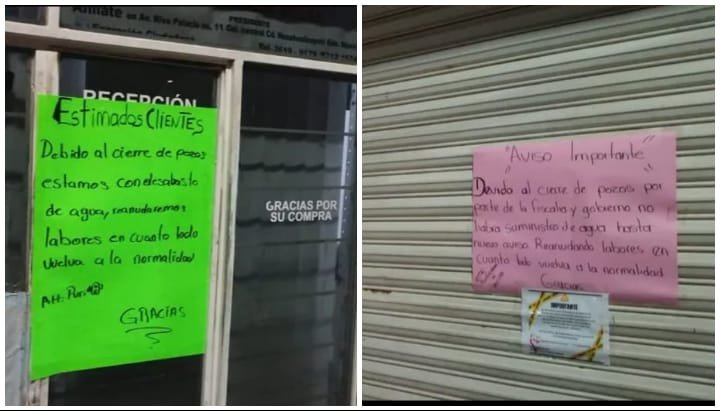 PRESIDENTE
en Av. Riva Palacio no. 11 Col. central Cd. Nezahualcoyotl Edo.
RECEPCIÓN
Estimados CLIENTES
Debido al cierre de pozos
estamos con desabasto
de agua, reanudaremos
labores en cuanto todo
vuelva a la normalidad
Att:
GRACIAS
GRACIAS POR
SU COMPRA
"Aviso Importante"
Devido al cierre de pozos por
parte de la fiscalia y gobierno no
habra suministro de agua hasta
nuevo aviso. Reanudando labores en
cuanto todo vuelva a la normalidad
Gracias
IMPORTANTE